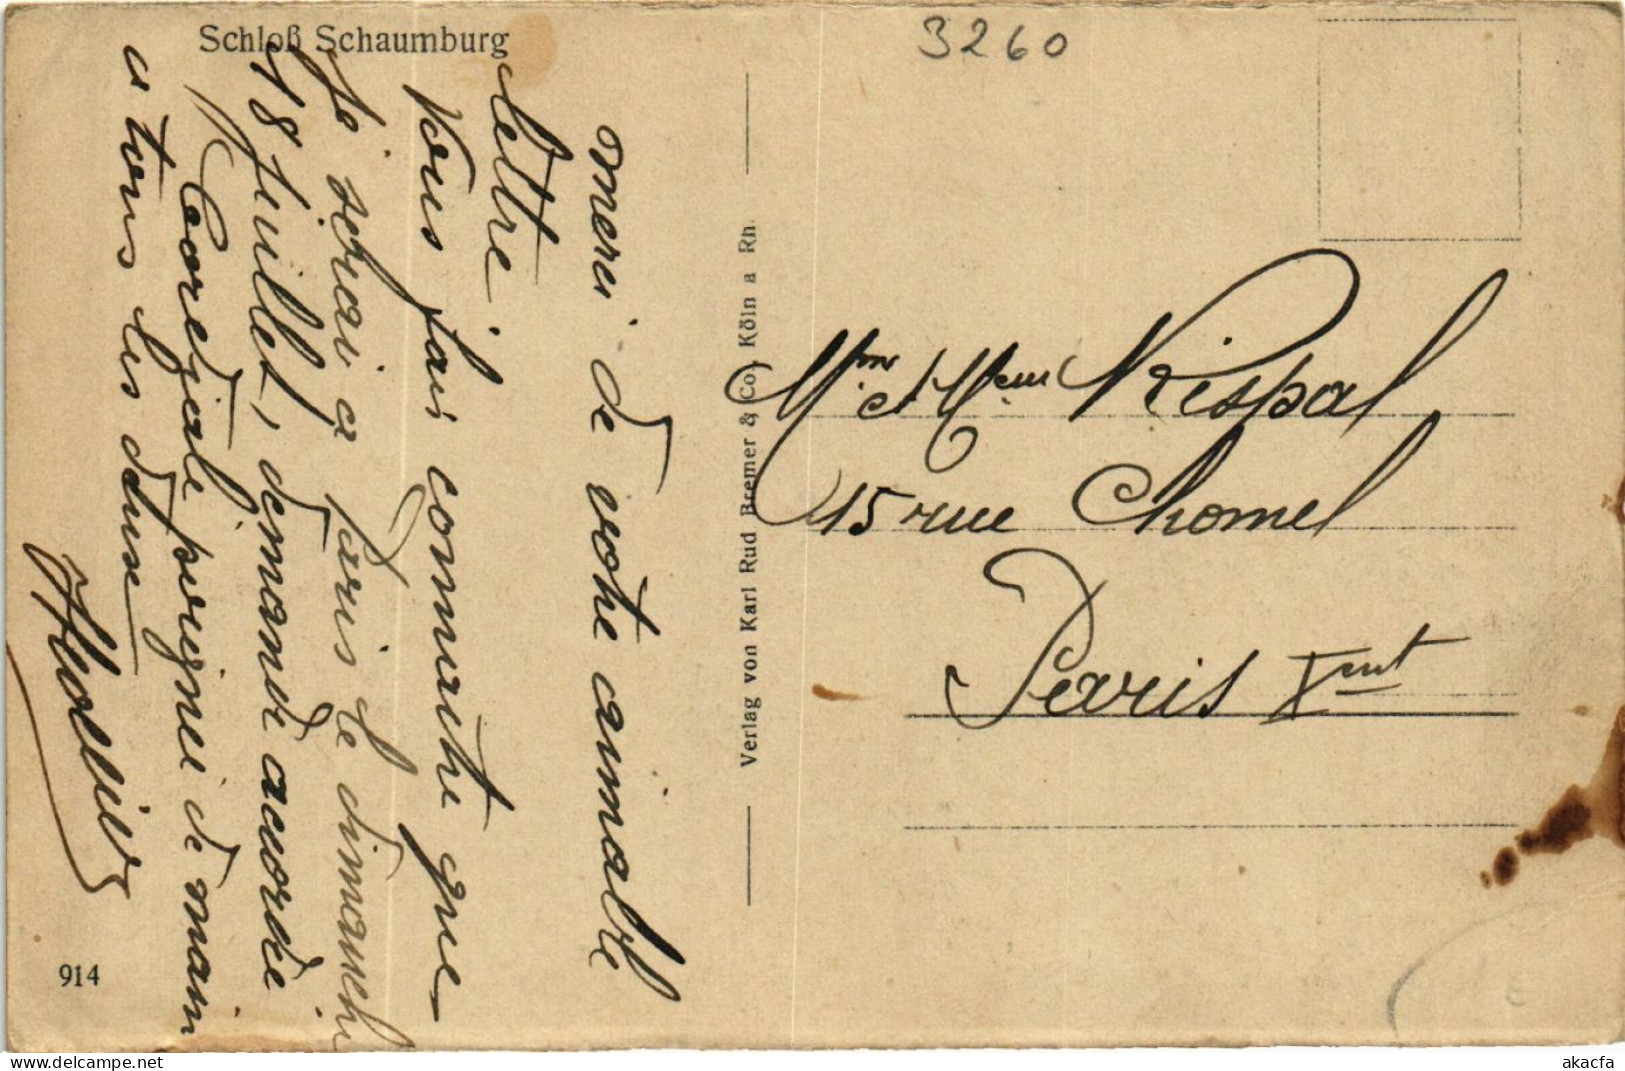 Schloß Schaumburg
3260
merci de votre aimable
lettre
Vous fais connaitre que
Je serai a Paris le dimanche
18 juillet, demande accordée
Cordiale poignée de main
a tous les deux
914
Verlag von Karl Rud Bremer & Co. Köln a Rh.
Mme et Mr
15 rue Chomel
Paris
akacfa